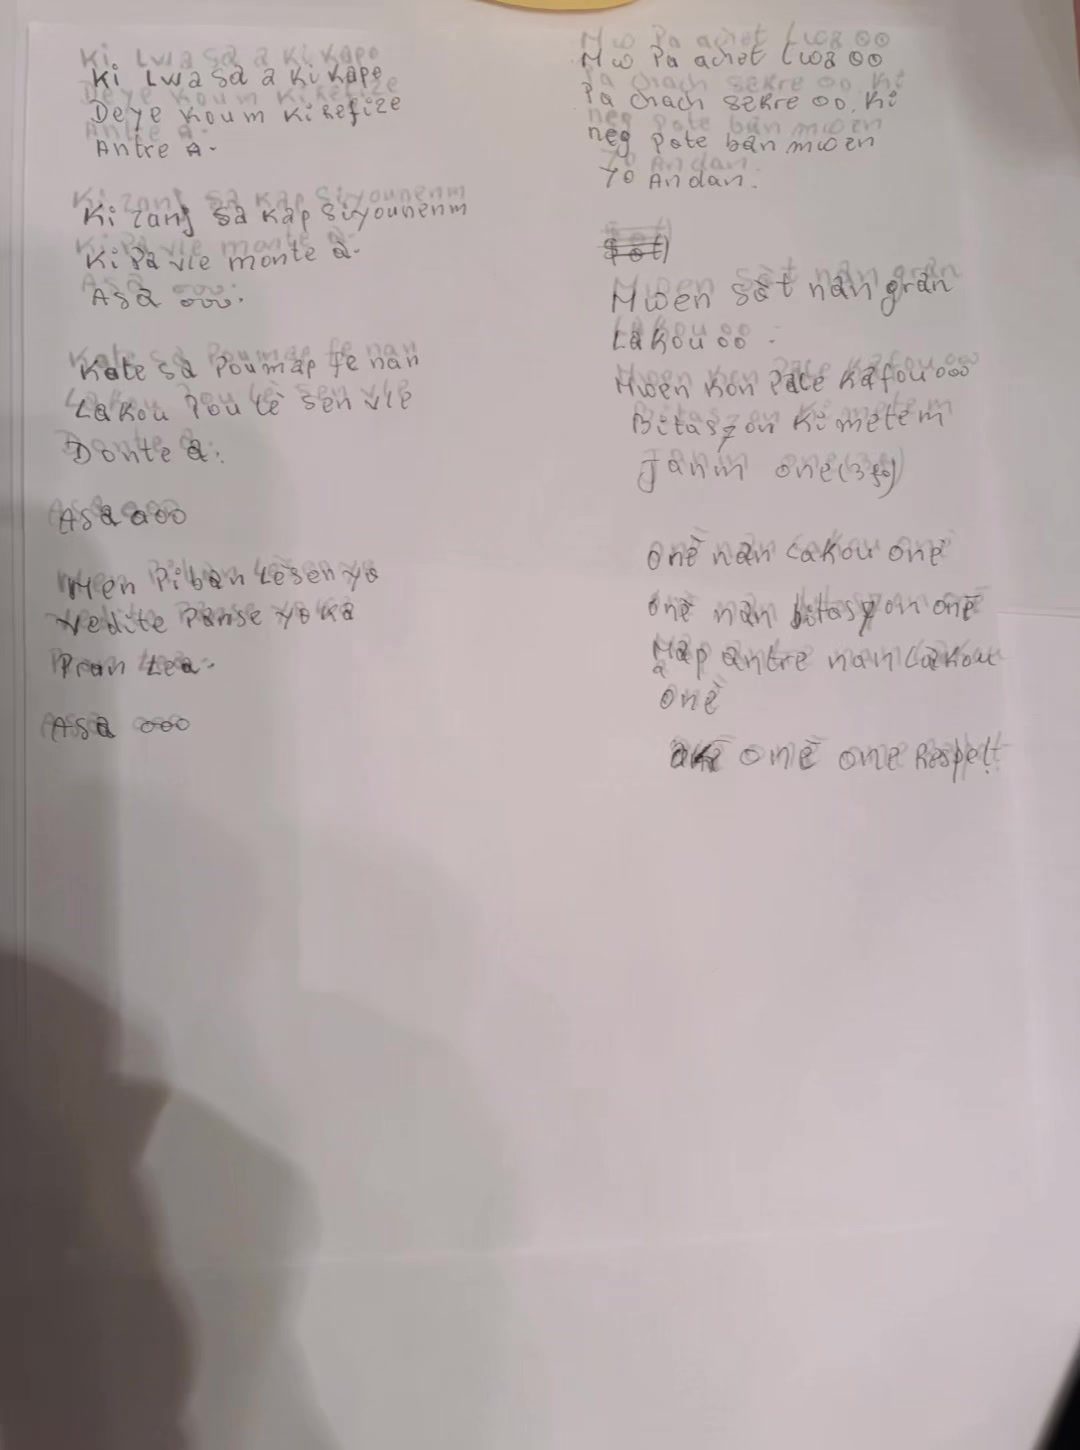 Ki Lwa Sa a Ki Kape
Deye Koum Ki Refize
Antre A.
Ki zanj sa Kap Siyounenm
Ki Pa vle monte a.
Asa ooo.
Kote sa Poumap fe nan
Lakou Pou lè sen vle
Donte a.
Asa aoo
Men Piban Lèsen yo
Vedite Panse yo ka
Pran Lea.
Asa ooo
Mw Pa achet Lwa oo
Pa chach sekre oo. Ki
neg Pote ban mwen
Yo Andan.
Mwen sot nan gran
Lakou oo.
Mwen kon Pale Kafou ooo
Bitasyon Ki metem
Janm onè (3 fo)
Onè nan Lakou onè
Onè nan bitasyon onè
Map antre nan Lakou
a
onè
onè onè Respekt